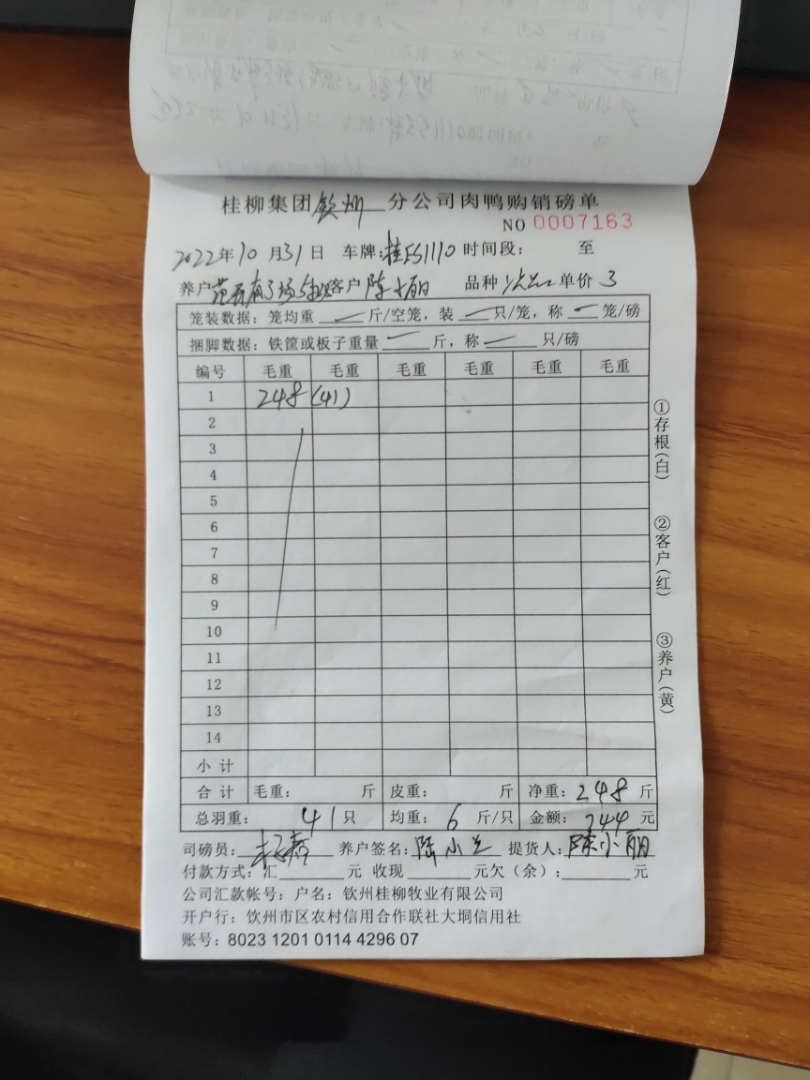 桂柳集团钦州分公司肉鸭购销磅单
NO 0007163
2022年10月31日 车牌:桂 时间段: 至
养户 客户 陈小丽 品种 单价 3
笼装数据:笼均重 斤/空笼,装 只/笼,称 笼/磅
捆脚数据:铁筐或板子重量 斤,称 只/磅
编号 毛重 毛重 毛重 毛重 毛重 毛重
1 248 (41)
2
3
4
5
6
7
8
9
10
11
12
13
14
小计
合计 毛重: 斤 皮重: 斤 净重:248斤
总羽重: 41只 均重:6斤/只 金额:744元
司磅员: 养户签名:陆小兰 提货人:陈小丽
付款方式:汇 元 收现 元欠(余): 元
公司汇款帐号:户名:钦州桂柳牧业有限公司
开户行:钦州市区农村信用合作联社大垌信用社
账号:8023 1201 0114 4296 07
①存根(白)
②客户(红)
③养户(黄)